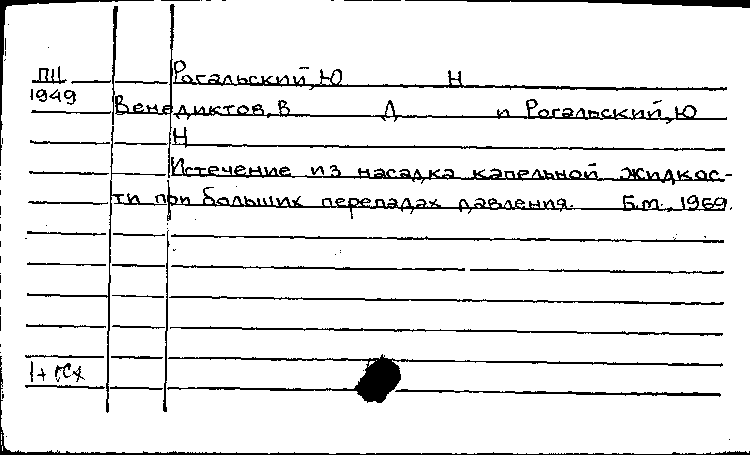 ПЦ Рогальский, Ю Н
1949 Венедиктов, В Д и Рогальский, Ю
Н
Истечение из насадка капельной жидкос-
ти при больших перепадах давления. Б.м., 1969.
1+